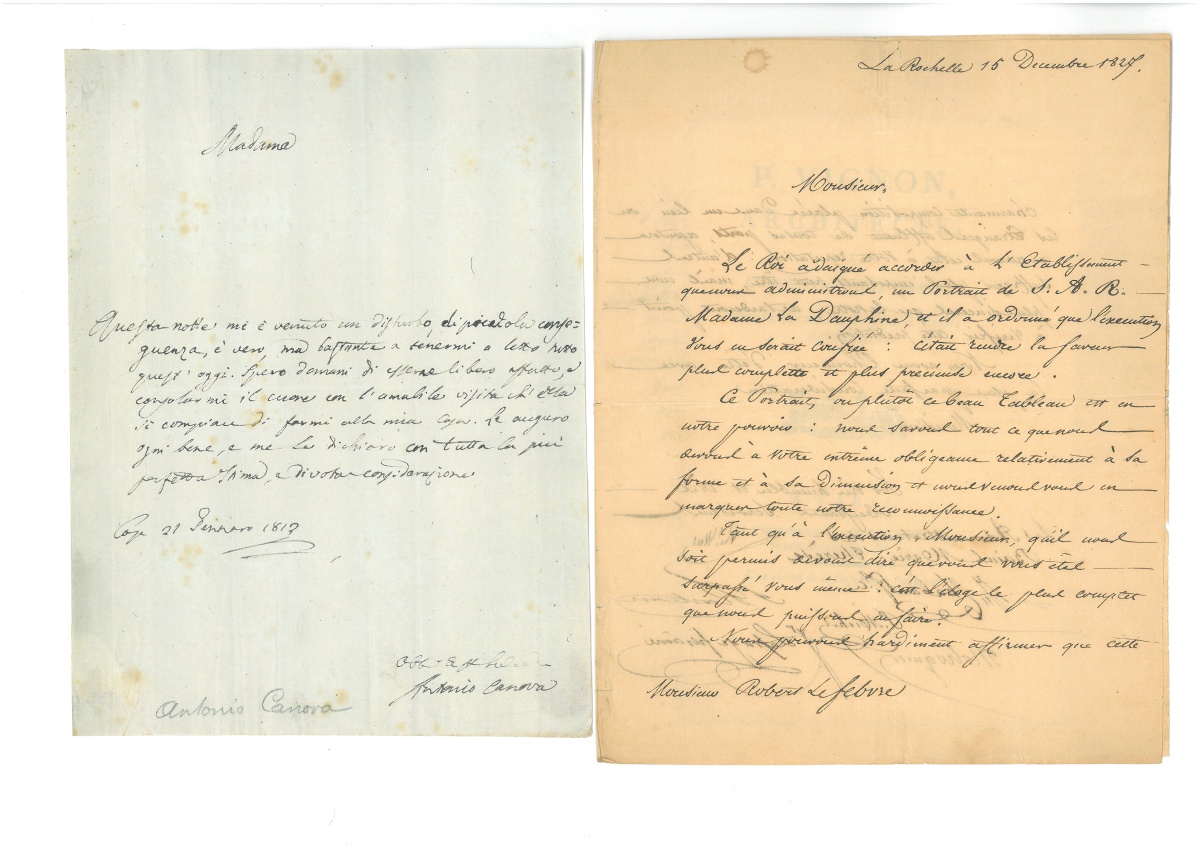 Madama
Questa notte mi è venuto un disturbo di piccola conse-
guenza, è vero, ma bastante a tenermi a letto tutto
quest' oggi. Spero domani di essere libero affatto, e
consolarmi il cuore con l'amabile visita ch'ella
si compiace di farmi alla mia Casa. Le auguro
ogni bene, e me le dichiaro con tutta la più
perfetta stima, e divota considerazione
Casa 21 Gennaro 1817
Antonio Canova
Antonio Canova
La Rochelle 15 Decembre 1827.
Monsieur,
Le Roi a daigné accorder à L'Etablissement
que nous administrons, un Portrait de S. A. R.
Madame La Dauphine, et il a ordonné que l'execution
vous en serait confiée : c'était rendre la faveur
plus complette et plus précieuse encore.
Ce Portrait, ou plutôt ce beau Tableau est en
notre pouvoir : nous savons tout ce que nous
devons à votre extrême obligeance relativement à sa
forme et à sa dimension et nous venons vous en
marquer toute notre reconnoissance.
Tant qu'à l'execution, Monsieur, qu'il nous
soit permis de vous dire que vous vous êtes
surpassé vous même : c'est l'éloge le plus complet
que nous puissions en faire.
Nous pouvons hardiment affirmer que cette
Monsieur Robert Lefebvre